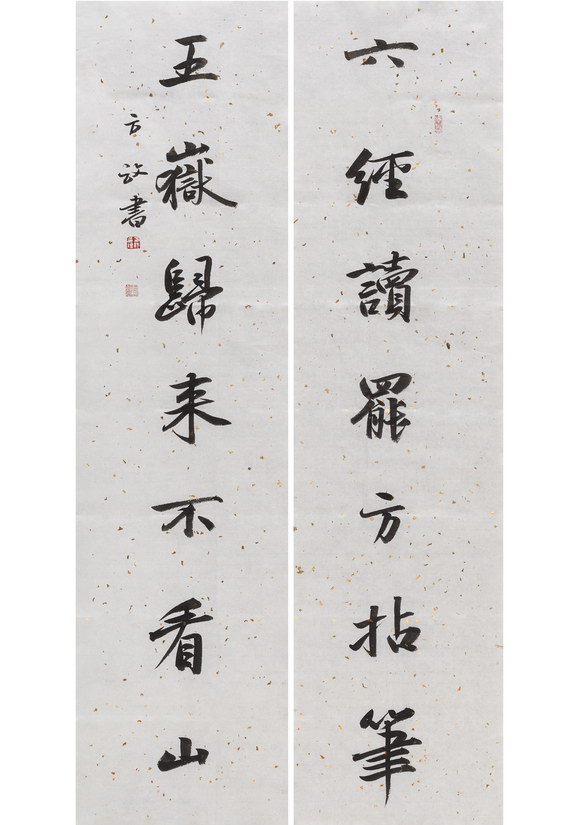 六經讀罷方拈筆
五嶽歸来不看山
方 書